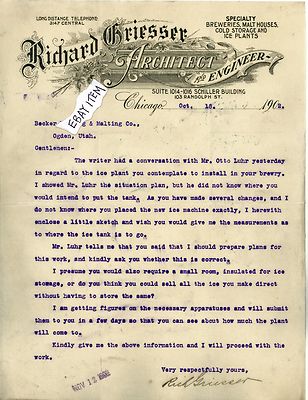 LONG DISTANCE TELEPHONE
3147 CENTRAL
SPECIALTY
BREWERIES, MALT HOUSES,
COLD STORAGE AND
ICE PLANTS
Richard Griesser
ARCHITECT
and ENGINEER
SUITE 1014-1016 SCHILLER BUILDING
103 RANDOLPH ST.
Chicago Oct. 190
EBAY ITEM
Becker & Malting Co.,
Ogden, Utah.
Gentlemen:-
The writer had a conversation with Mr. Otto Luhr yesterday
in regard to the ice plant you contemplate to install in your brewry.
I showed Mr. Luhr the situation plan, but he did not know where you
would intend to put the tank. As you have made several changes, and I
do not know where you placed the new ice machine exactly, I herewith
enclose a little sketch and wish you would give me the measurements as
to where the ice tank is to go.
Mr. Luhr tells me that you said that I should prepare plans for
this work, and kindly ask you whether this is correct.
I presume you would also require a small room, insulated for ice
storage, or do you think you could sell all the ice you make direct
without having to store the same?
I am getting figures on the necessary apparatuses and will submit
them to you in a few days so that you can see about how much the plant
will come to.
Kindly give me the above information and I will proceed with the
work.
Very respectfully yours,
Rich Griesser
NOV 12